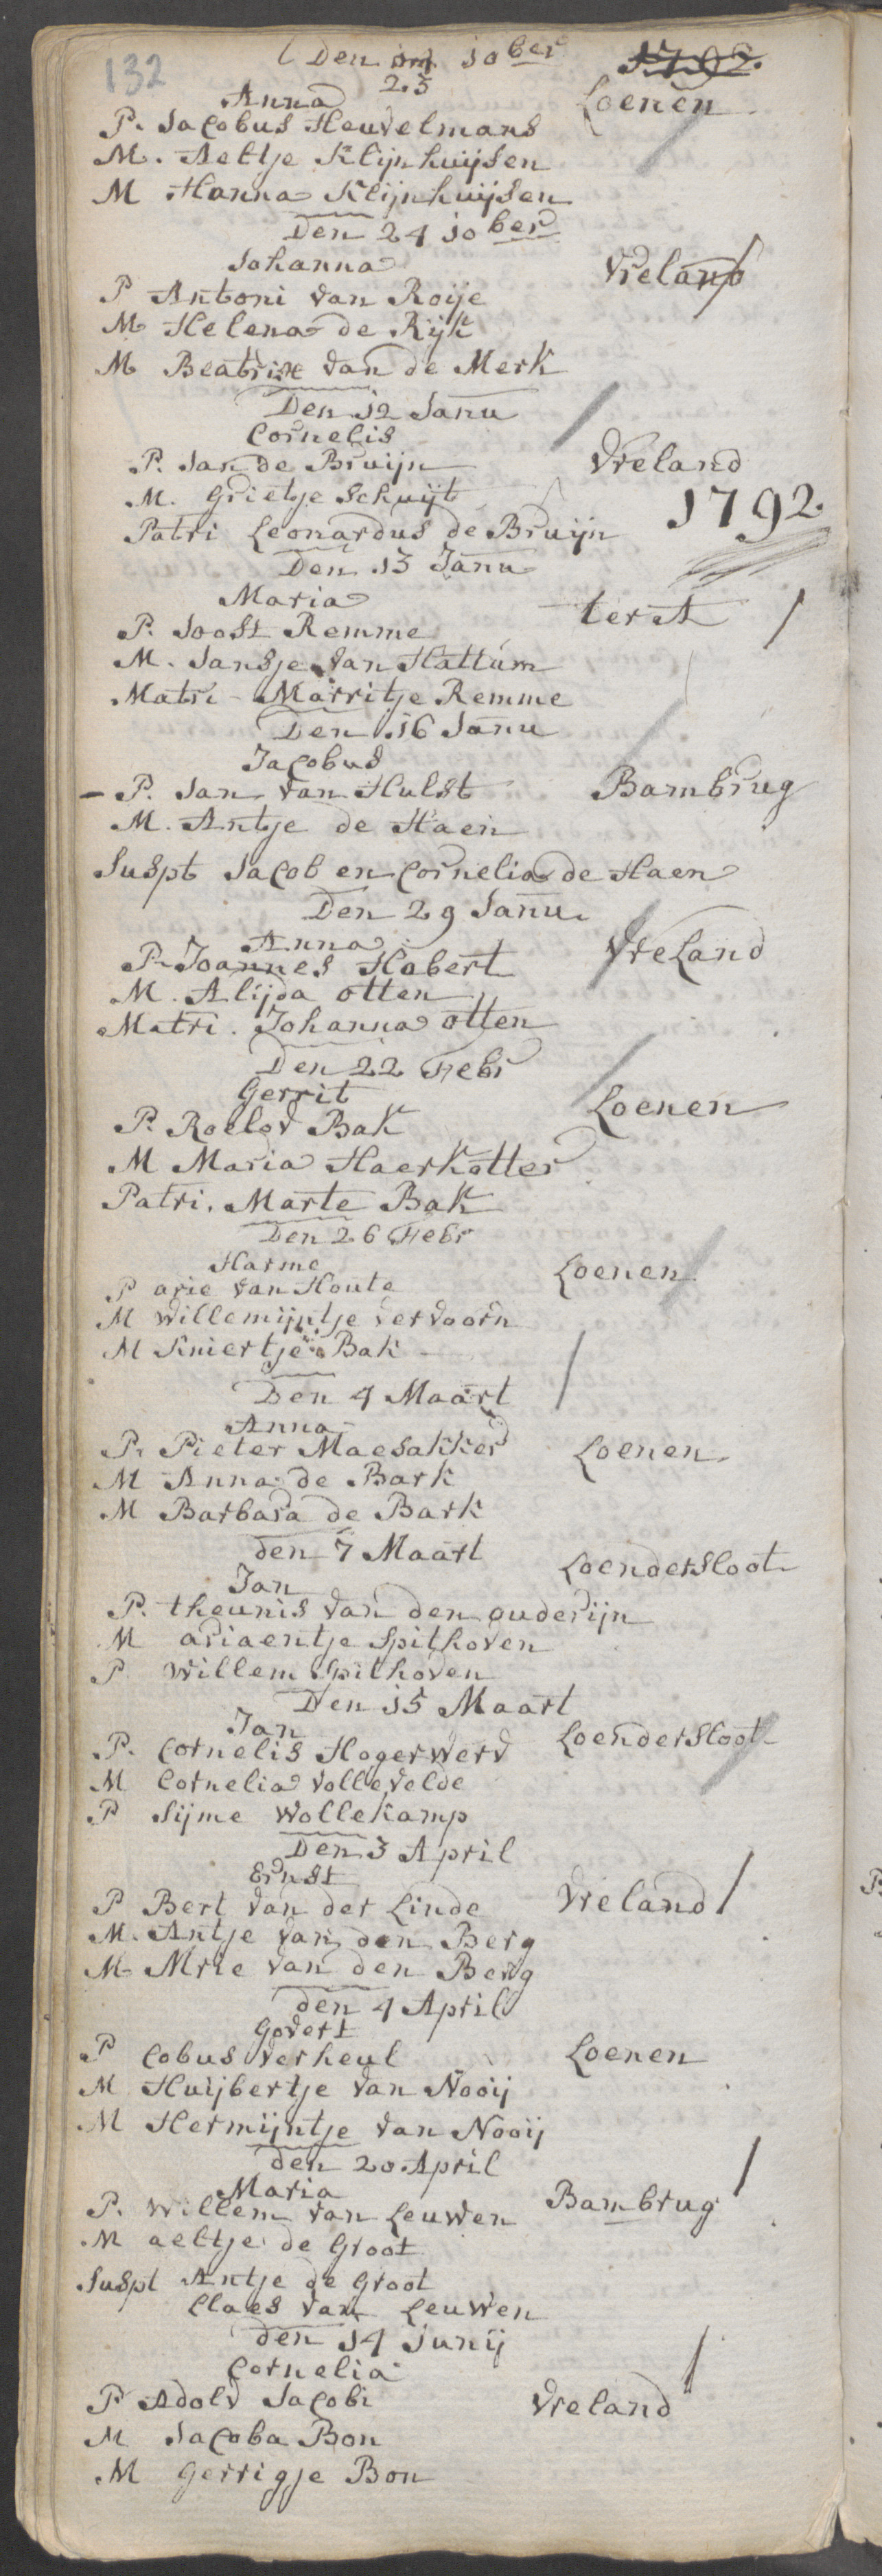 132
Den 10ber 1792.
23
Anna Loenen
P. Jacobus Heuvelmans
M. Aeltje Klijnhuijsen
M Hanna Klijnhuijsen
Den 24 10ber
Johanna Vreland
P Antoni van Roije
M Helena de Rijk
M Beatrix van de Merk
Den 12 Janu
Cornelis
P. Jan de Bruijn Vreland
M. Grietje Schuijt
1792.
Patri Leonardus de Bruijn
Den 13 Janu
Maria ter A
P. Joost Remme
M. Jansje van Hattum
Matri - Marritje Remme
Den 16 Janu
Jacobus
- P. Jan van Hulst Bambrug
M. Antje de Haen
Suspt Jacob en Cornelia de Haen
Den 29 Janu
Anna Vreland
P. Joannes Habert
M. Alijda otten
Matri. Johanna otten
Den 22 Febr
Gerrit Loenen
P. Roelov Bak
M Maria Haerkotter
Patri. Marte Bak
Den 26 Febr
Harme Loenen
P arie van Houte
M Willemijntje vervoorn
M Kniertje Bak
Den 4 Maart
Anna
P. Pieter Maesakker Loenen
M Anna de Bark
M Barbara de Bark
den 7 Maart Loendersloot
Jan
P. theunis van den ouderijn
M ariaentje Spithoven
P Willem Spithoven
Den 15 Maart
Jan Loendersloot
P. Cornelis Hogerwerv
M Cornelia vollevelde
P Sijme Wollekamp
Den 3 April
Ernst
P Bert van der Linde Vreland
M. Antje van den Berg
M Mrie van den Berg
den 4 April
Govert
P Cobus verheul Loenen
M Huijbertje van Nooij
M Hermijntje van Nooij
den 20 April
Maria Bambrug
P. Willem van Leuwen
M aeltje de Groot
Suspt Antje de Groot
Claes van Leuwen
den 14 Junij
Cornelia
P Adolv Jacobi Vreland
M Jacoba Bon
M Gerrigje Bon